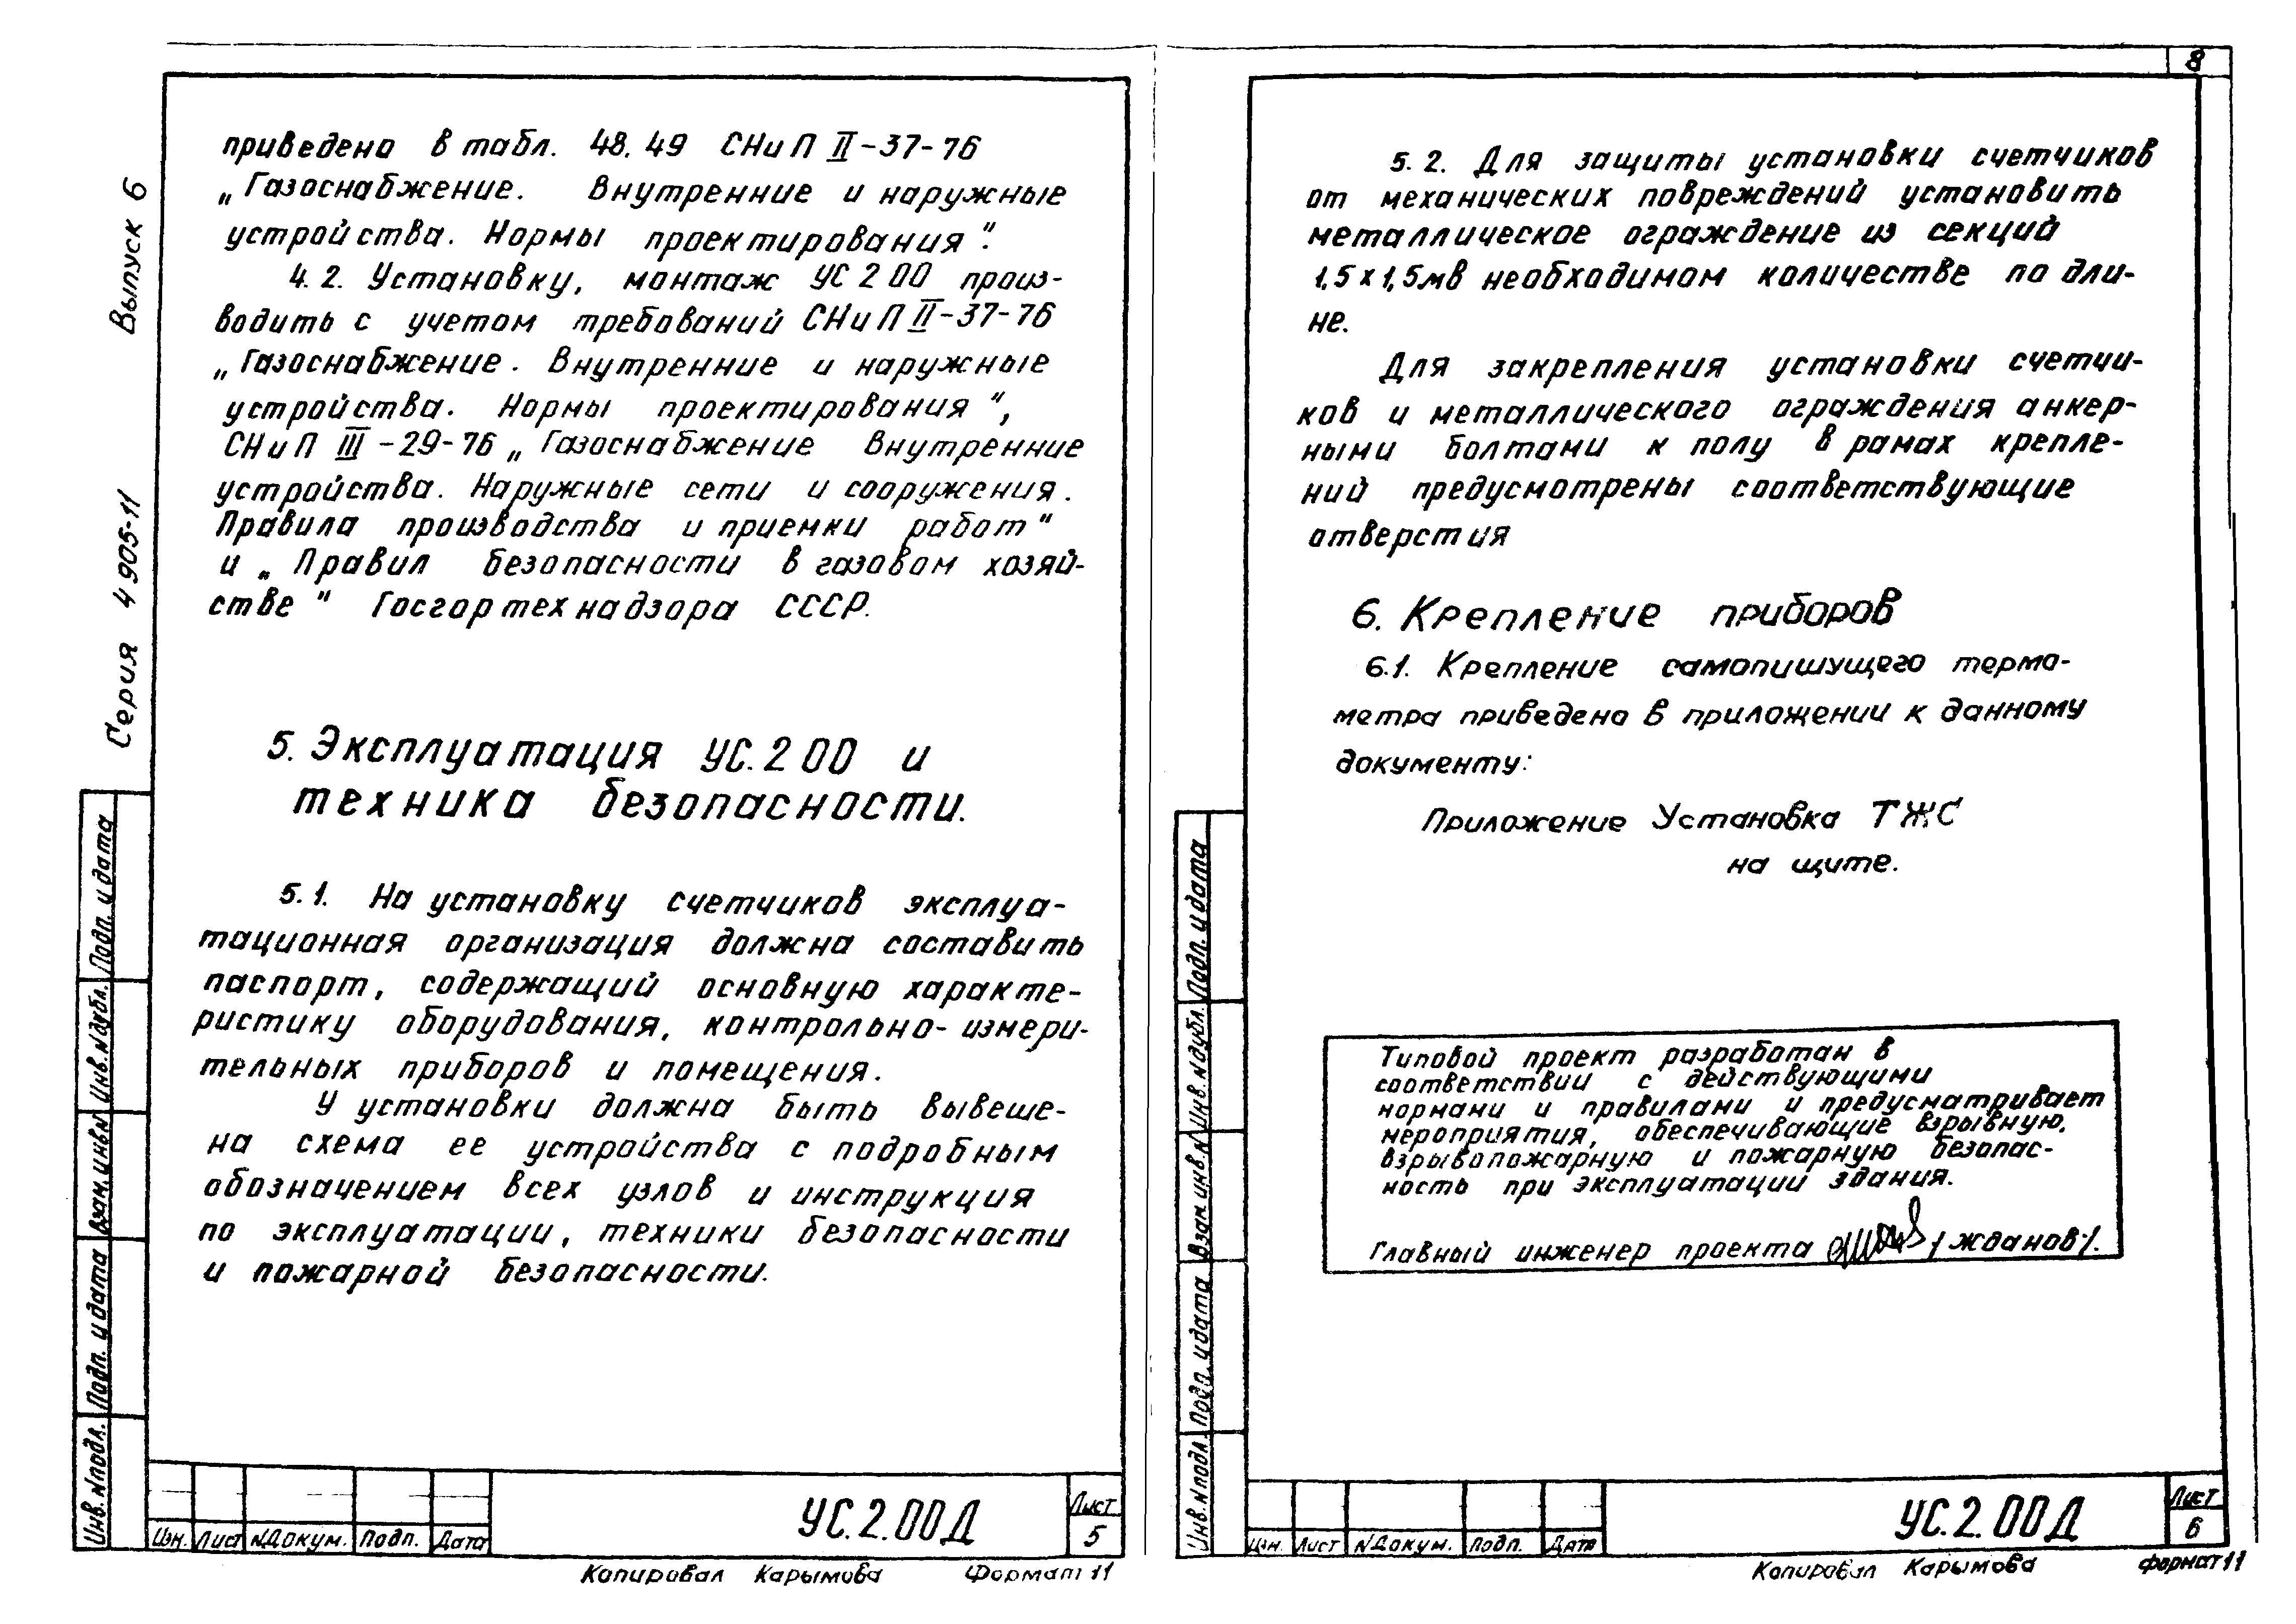 Серия 4 905-11 Выпуск 6
приведено в табл. 48. 49 СНиП II-37-76
„Газоснабжение. Внутренние и наружные
устройства. Нормы проектирования".
4.2. Установку, монтаж УС 2 00 произ-
водить с учетом требований СНиП II-37-76
„Газоснабжение. Внутренние и наружные
устройства. Нормы проектирования",
СНиП III-29-76 „Газоснабжение Внутренние
устройства. Наружные сети и сооружения.
Правила производства и приемки работ"
и „Правил безопасности в газовом хозяй-
стве" Госгортехнадзора СССР.
5. Эксплуатация УС.2 00 и
техника безопасности.
5.1. На установку счетчиков эксплуа-
тационная организация должна составить
паспорт, содержащий основную характе-
ристику оборудования, контрольно-измери-
тельных приборов и помещения.
У установки должна быть вывеше-
на схема ее устройства с подробным
обозначением всех узлов и инструкция
по эксплуатации, техники безопасности
и пожарной безопасности.
Инв. N подл. Подп. и дата Взам. инв. N Инв. N дубл. Подп. и дата
Изм. Лист N Докум. Подп. Дата
УС.2.00Д
Лист
5
Копировал Карымова Формат 11
8
5.2. Для защиты установки счетчиков
от механических повреждений установить
металлическое ограждение из секций
1,5 х 1,5м в необходимом количестве по дли-
не.
Для закрепления установки счетчи-
ков и металлического ограждения анкер-
ными болтами к полу в рамах крепле-
ний предусмотрены соответствующие
отверстия
6. Крепление приборов
6.1. Крепление самопишущего термо-
метра приведено в приложении к данному
документу:
Приложение Установка ТЖС
на щите.
Типовой проект разработан в
соответствии с действующими
нормами и правилами и предусматривает
мероприятия, обеспечивающие взрывную,
взрывопожарную и пожарную безопас-
ность при эксплуатации здания.
Главный инженер проекта /Жданов/.
Инв. N подл. Подп. и дата Взам. инв. N Инв. N дубл. Подп. и дата
Изм. Лист N Докум. Подп. Дата
УС.2.00Д
Лист
6
Копировал Карымова Формат 11